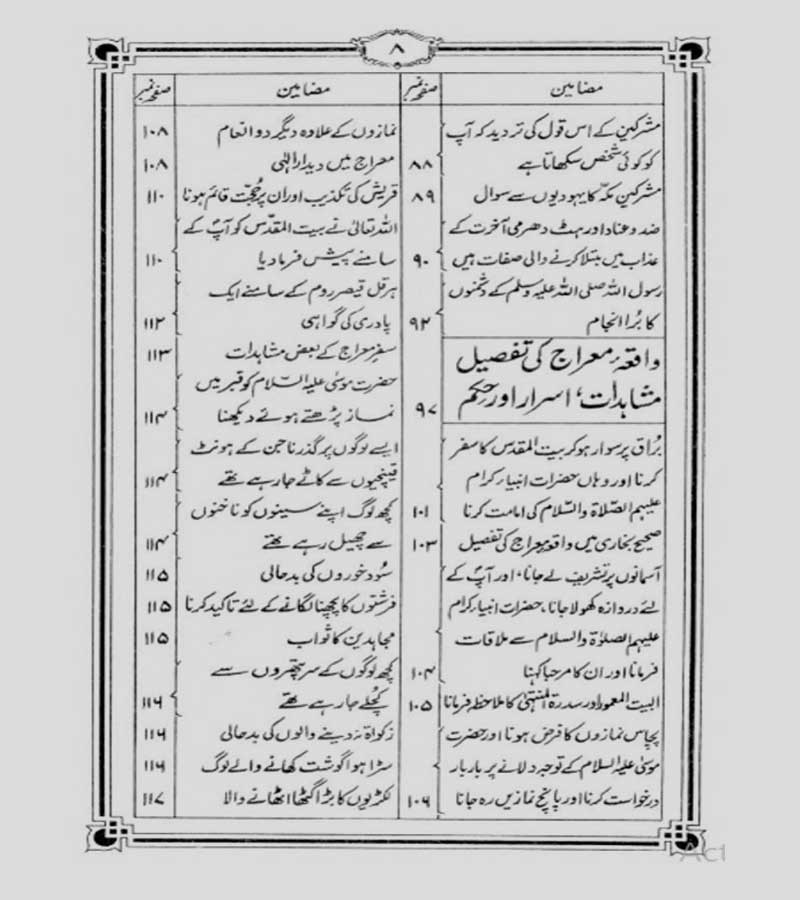 ۸
مضامین صفحہ نمبر
مشرکین کے اس قول کی تردید کہ آپ
کو کوئی شخص سکھاتا ہے ۸۸
مشرکین مکہ کا یہودیوں سے سوال ۸۹
ضد و عناد اور ہٹ دھرمی آخرت کے
عذاب میں مبتلا کرنے والی صفات ہیں ۹۰
رسول اللہ صلی اللہ علیہ وسلم کے دشمنوں
کا بُرا انجام ۹۲
واقعۂ معراج کی تفصیل
مشاہدات، اسرار اور حِکَم ۹۷
بُراق پر سوار ہو کر بیت المقدس کا سفر
کرنا اور وہاں حضرات انبیاء کرام
علیہم الصّلاۃ والسّلام کی امامت کرنا ۱۰۱
صحیح بخاری میں واقعہ معراج کی تفصیل ۱۰۳
آسمانوں پر تشریف لے جانا، اور آپؐ کے
لئے دروازہ کھولا جانا، حضرات انبیاء کرام
علیہم الصلوٰۃ والسلام سے ملاقات
فرمانا اور ان کا مرحبا کہنا ۱۰۴
البیت المعمور اور سدرۃ المنتہیٰ کا ملاحظہ فرمانا ۱۰۵
پچاس نمازوں کا فرض ہونا اور حضرت
موسیٰ علیہ السلام کے توجہ دلانے پر بار بار
درخواست کرنا اور پانچ نمازیں رہ جانا ۱۰۶
مضامین صفحہ نمبر
نمازوں کے علاوہ دیگر دو انعام ۱۰۸
معراج میں دیدارِ الٰہی ۱۰۸
قریش کی تکذیب اور ان پر حُجّت قائم ہونا ۱۱۰
اللہ تعالیٰ نے بیت المقدّس کو آپؐ کے
سامنے پیش فرما دیا ۱۱۰
ہرقل قیصر روم کے سامنے ایک
پادری کی گواہی ۱۱۲
سفرِ معراج کے بعض مشاہدات ۱۱۳
حضرت موسیٰ علیہ السّلام کو قبر میں
نماز پڑھتے ہوئے دیکھنا ۱۱۴
ایسے لوگوں پر گذرنا جن کے ہونٹ
قینچیوں سے کاٹے جا رہے تھے ۱۱۴
کچھ لوگ اپنے سینوں کو ناخنوں
سے چھیل رہے تھے ۱۱۴
سُود خوروں کی بدحالی ۱۱۵
فرشتوں کا پچھنا لگانے کے لئے تاکید کرنا ۱۱۵
مجاہدین کا ثواب ۱۱۵
کچھ لوگوں کے سر پتھروں سے
کُچلے جا رہے تھے ۱۱۶
زکوٰۃ نہ دینے والوں کی بدحالی ۱۱۶
سڑا ہوا گوشت کھانے والے لوگ ۱۱۶
لکڑیوں کا بڑا گٹھا اٹھانے والا ۱۱۷
Act